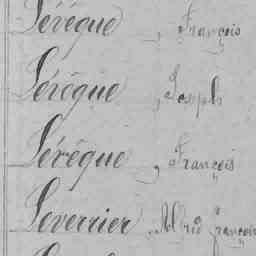 Lérêque, François
Lérêque, Joseph
Lérêque, François
Leverrier, Alfrid françois